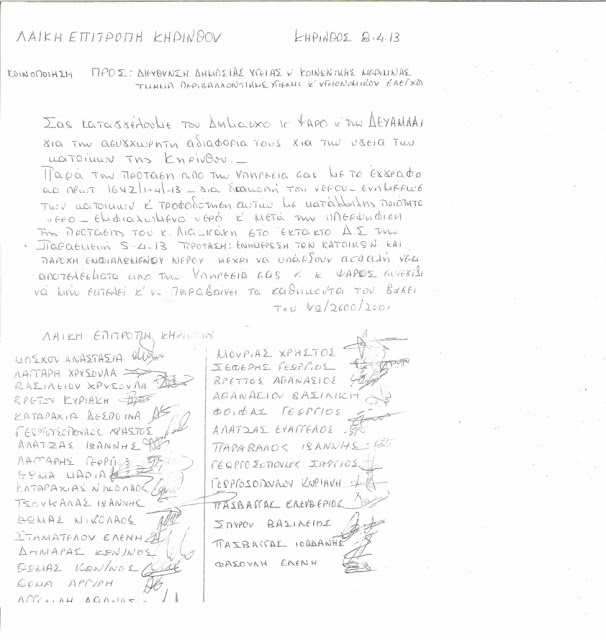 ΛΑΙΚΗ ΕΠΙΤΡΟΠΗ ΚΗΡΙΝΘΟΥ ΚΗΡΙΝΘΟΣ 8-4-13
ΚΟΙΝΟΠΟΙΗΣΗ ΠΡΟΣ: ΔΙΕΥΘΥΝΣΗ ΔΗΜΟΣΙΑΣ ΥΓΕΙΑΣ Κ' ΚΟΙΝΩΝΙΚΗΣ ΜΕΡΙΜΝΑΣ
ΤΜΗΜΑ ΠΕΡΙΒΑΛΛΟΝΤΙΚΗΣ ΥΓΙΕΙΝΗΣ Κ' ΥΓΕΙΟΝΟΜΙΚΟΥ ΕΛΕΓΧΟΥ
Σας καταγγέλουμε τον Δήμαρχο κ' ΨΑΡΟ κ' την ΔΕΥΑΜΜΑΙ
για την ασυγχώρητη αδιαφορία τους για την υγεία των
κατοίκων της Κηρίνθου.
Παρά την πρόταση από την Υπηρεσία σας με το έγγραφο
αρ πρωτ 1642/1-4-13 - δια διακοπή του νερού - ενημέρωσε
των κατοίκων κ' τροφοδότηση αυτών με κατάλληλης ποιότητο
νερο - εμφιαλωμένο νερό κ' μετά την υπερψήφιση
της πρότασης του κ. στο έκτακτο Δ.Σ της
Παρασκευή 5-4-13 ΠΡΟΤΑΣΗ: ΕΝΗΜΕΡΩΣΗ ΤΩΝ ΚΑΤΟΙΚΩΝ ΚΑΙ
ΠΑΡΟΧΗ ΕΜΦΙΑΛΩΜΕΝΟΥ ΝΕΡΟΥ ΜΕΧΡΙ ΝΑ ΥΠΑΡΞΟΥΝ ΑΣΦΑΛΗ ΝΕΑ
αποτελέσματα από την Υπηρεσία σας ο κ ΨΑΡΟΣ συνεχίζει
να μην εκτελεί κ' να παραβαίνει τα καθήκοντα του βάσει
του Υ2/2600/2001
ΛΑΙΚΗ ΕΠΙΤΡΟΠΗ ΚΗΡΙΝΘΟΥ
ΜΟΣΧΟΥ ΑΝΑΣΤΑΣΙΑ
ΛΑΓΓΑΡΗ ΧΡΥΣΟΥΛΑ
ΒΑΣΙΛΕΙΟΥ ΧΡΥΣΟΥΛΑ
ΒΡΕΤΟΥ ΚΥΡΙΑΚΗ
ΚΑΤΑΡΑΧΙΑ ΔΕΣΠΟΙΝΑ
ΓΕΩΡΓΟΣΟΠΟΥΛΟΣ ΧΡΗΣΤΟΣ
ΑΛΑΤΖΑΣ ΙΩΑΝΝΗΣ
ΛΑΓΓΑΡΗΣ ΓΕΩΡΓΙΟΣ
ΘΩΜΑ ΜΑΡΙΑ
ΚΑΤΑΡΑΧΙΑΣ ΝΙΚΟΛΑΟΣ
ΤΣΟΥΚΑΛΑΣ ΙΩΑΝΝΗΣ
ΘΩΜΑΣ ΝΙΚΟΛΑΟΣ
ΣΤΑΜΑΤΕΛΟΥ ΕΛΕΝΗ
ΔΗΜΑΡΑΣ ΚΩΝ/ΝΟΣ
ΘΩΜΑΣ ΚΩΝ/ΝΟΣ
ΘΩΜΑ ΑΡΓΥΡΗ
ΜΟΥΡΙΑΣ ΧΡΗΣΤΟΣ
ΣΕΦΕΡΗΣ ΓΕΩΡΓΙΟΣ
ΒΡΕΤΤΟΣ ΑΘΑΝΑΣΙΟΣ
ΑΘΑΝΑΣΙΟΥ ΒΑΣΙΛΙΚΗ
ΦΟΙΦΑΣ ΓΕΩΡΓΙΟΣ
ΑΛΑΤΖΑΣ ΕΥΑΓΓΕΛΟΣ
ΠΑΡΑΒΑΛΟΣ ΙΩΑΝΝΗΣ
ΓΕΩΡΓΟΣΟΠΟΥΛΟΣ ΣΠΗΡΓΙΟΣ
ΓΕΩΡΓΟΣΟΠΟΥΛΟΥ ΚΥΡΙΑΚΗ
ΠΑΣΒΑΓΓΑΣ ΕΛΕΥΘΕΡΙΟΣ
ΣΠΥΡΟΥ ΒΑΣΙΛΕΙΟΣ
ΠΑΣΒΑΓΓΑΣ ΙΟΡΔΑΝΗΣ
ΦΑΣΟΥΛΗ ΕΛΕΝΗ